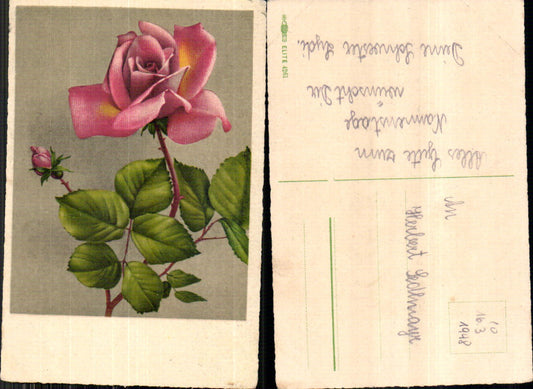 Alles Gute zum
Namenstage
wünscht Dir
Deine Schwester Lydi.
An
Herbert
10
16 3
1948
ELITE 4061